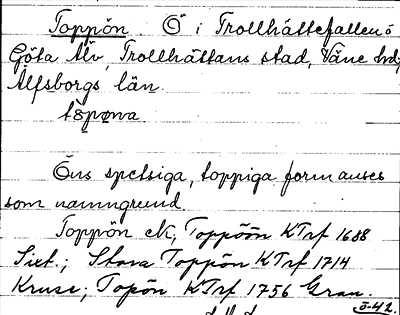 Toppön. Ö i Trollhättefallen i
Göta Älv, Trollhättans stad, Väne hd,
Älfsborgs län.
Öns spetsiga, toppiga form anses
som namngrund.
Toppön ek, Toppöön KTrf 1688
Sixt.; Stora Toppön KTrf 1714
Kruse; Topön KTrf 1756 Gran.
5-42.